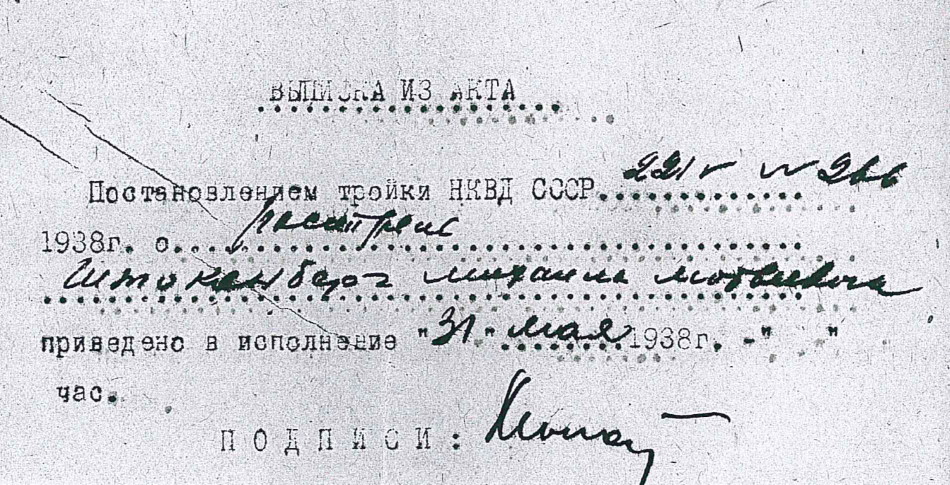 ВЫПИСКА ИЗ АКТА
Постановлением тройки НКВД СССР
1938г. о расстреле
Штокенберг Михаила
приведено в исполнение "31" мая 1938г. -" "
час.
ПОДПИСИ: